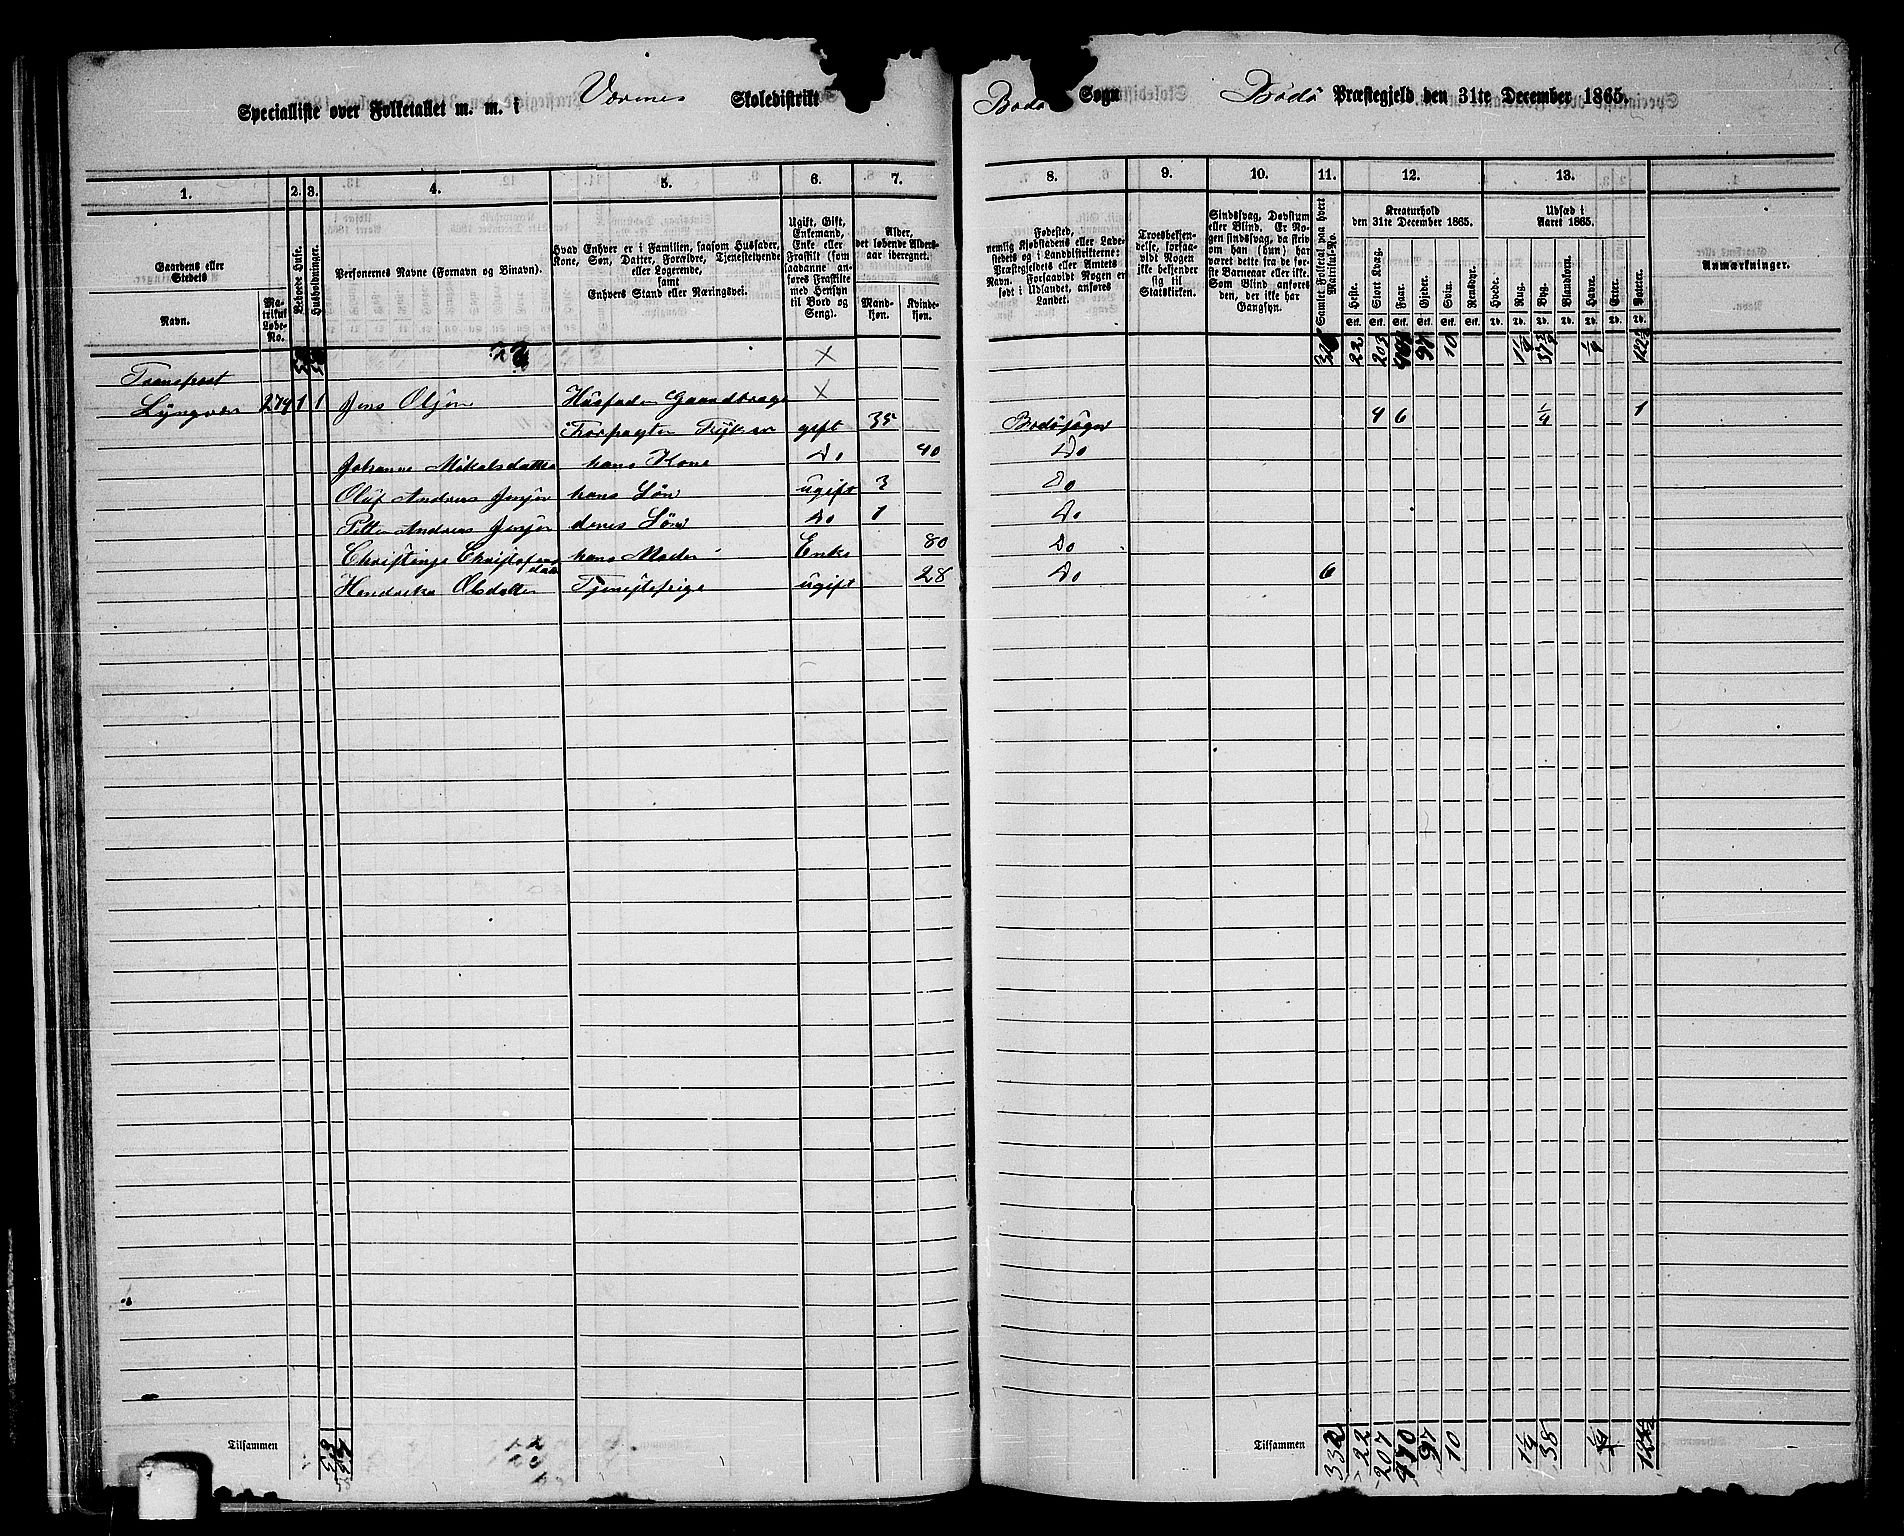 Specialliste over Folketallet m. m. i Vernes Skoledistrikt Bodø Sogn Bodø Præstegjeld den 31te December 1865.
1. 2. 3. 4. 5. 6. 7. 8. 9. 10. 11. 12. 13.
Gaardens eller Stedets Navn.
Matrikul Løbe-No.
Beboede Huse.
Husholdninger.
Personernes Navne (Fornavn og Binavn).
Hvad Enhver er i Familien, saasom Husfader, Kone, Søn, Datter, Forældre, Tjenestetyende eller Logerende, samt Enhvers Stand eller Næringsvei.
Ugift, Gift, Enkemand, Enke eller Fraskilt (som saadanne anføres Fraskilte med Hensyn til Bord og Seng).
Alder, det løbende Aldersaar iberegnet.
Mandkjøn. Kvindekjøn.
Fødested, nemlig Kjøbstadens eller Ladestedets og i Landdistrikterne: Præstegjeldets eller Amtets Navn. Forsaavidt Nogen er født i Udlandet, anføres Landet.
Troesbekjendelse, forsaavidt Nogen ikke bekjender sig til Statskirken.
Sindssvag, Døvstum eller Blind. Er Nogen sindssvag, da skrives om han (hun) har været dette fra de første Barneaar eller ikke. Som Blind anføres den, der ikke har Gangsyn.
Samlet Folketal paa hvert Matrikul-No.
Kreaturhold den 31te December 1865.
Heste. Stort Kvæg. Faar. Gjeder. Svin. Rensdyr.
Udsæd i Aaret 1865.
Hvede. Rug. Byg. Blandkorn. Havre. Erter. Poteter.
Anmærkninger.
Transport 22 203 10
Lyngvær 274 1 1 Jens Olsen Husfader Gaardbruger
Forpagter Fisker gift 35 Bodøsogn 4 6 1/4 1
Johanna Mikalsdatter hans Kone Do 40 Do
Oluf Andreas Jensen hans Søn ugift 3 Do
Petter Andreas Jensen deres Søn Do 1 Do
hans Moder Enke 80 Do
Olsdatter Tjenestepige ugift 28 Do 6
Tilsammen Tilsammen 332 22 207 470 97 10 1/4 38